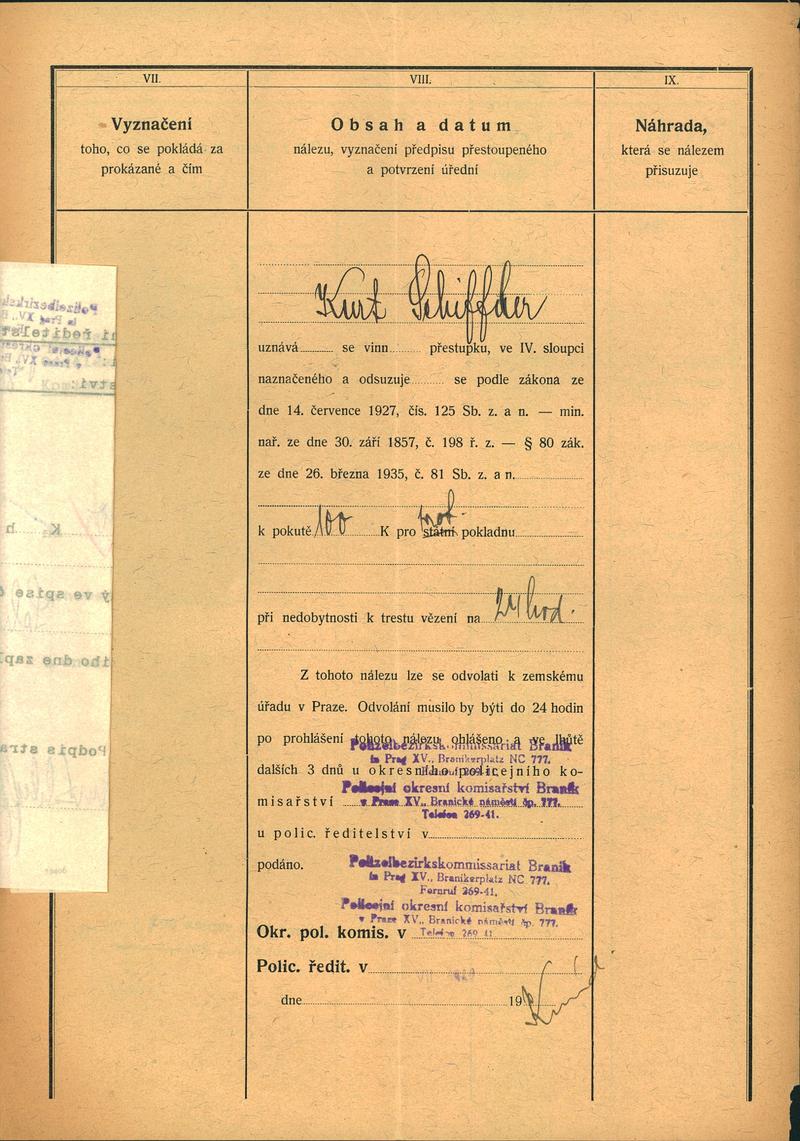 VII.
VIII.
IX.
Vyznačení
toho, co se pokládá za
prokázané a čím
Obsah a datum
nálezu, vyznačení předpisu přestoupeného
a potvrzení úřední
Náhrada,
která se nálezem
přisuzuje
Kurt Schiffder
uznává se vinn přestupku, ve IV. sloupci
naznačeného a odsuzuje se podle zákona ze
dne 14. července 1927, čís. 125 Sb. z. a n. — min.
nař. ze dne 30. září 1857, č. 198 ř. z. — § 80 zák.
ze dne 26. března 1935, č. 81 Sb. z. a n.
k pokutě 100 K pro státní pokladnu
při nedobytnosti k trestu vězení na 24 hod.
Z tohoto nálezu lze se odvolati k zemskému
úřadu v Praze. Odvolání musilo by býti do 24 hodin
po prohlášení tohoto nálezu ohlášeno a ve lhůtě
Polizeibezirkskommissariat Braník
in Prag XV., Branikerplatz NC 777.
dalších 3 dnů u okresního policejního ko-
Policejní okresní komisařství Braník
misařství v Praze XV., Branické náměstí čp. 777.
Telefon 269-41.
u polic. ředitelství v
podáno.
Polizeibezirkskommissariat Braník
in Prag XV., Branikerplatz NC 777.
Fernruf 269-41.
Policejní okresní komisařství Braník
v Praze XV., Branické náměstí čp. 777.
Okr. pol. komis. v Telefon 269 41
Polic. ředit. v
dne 19